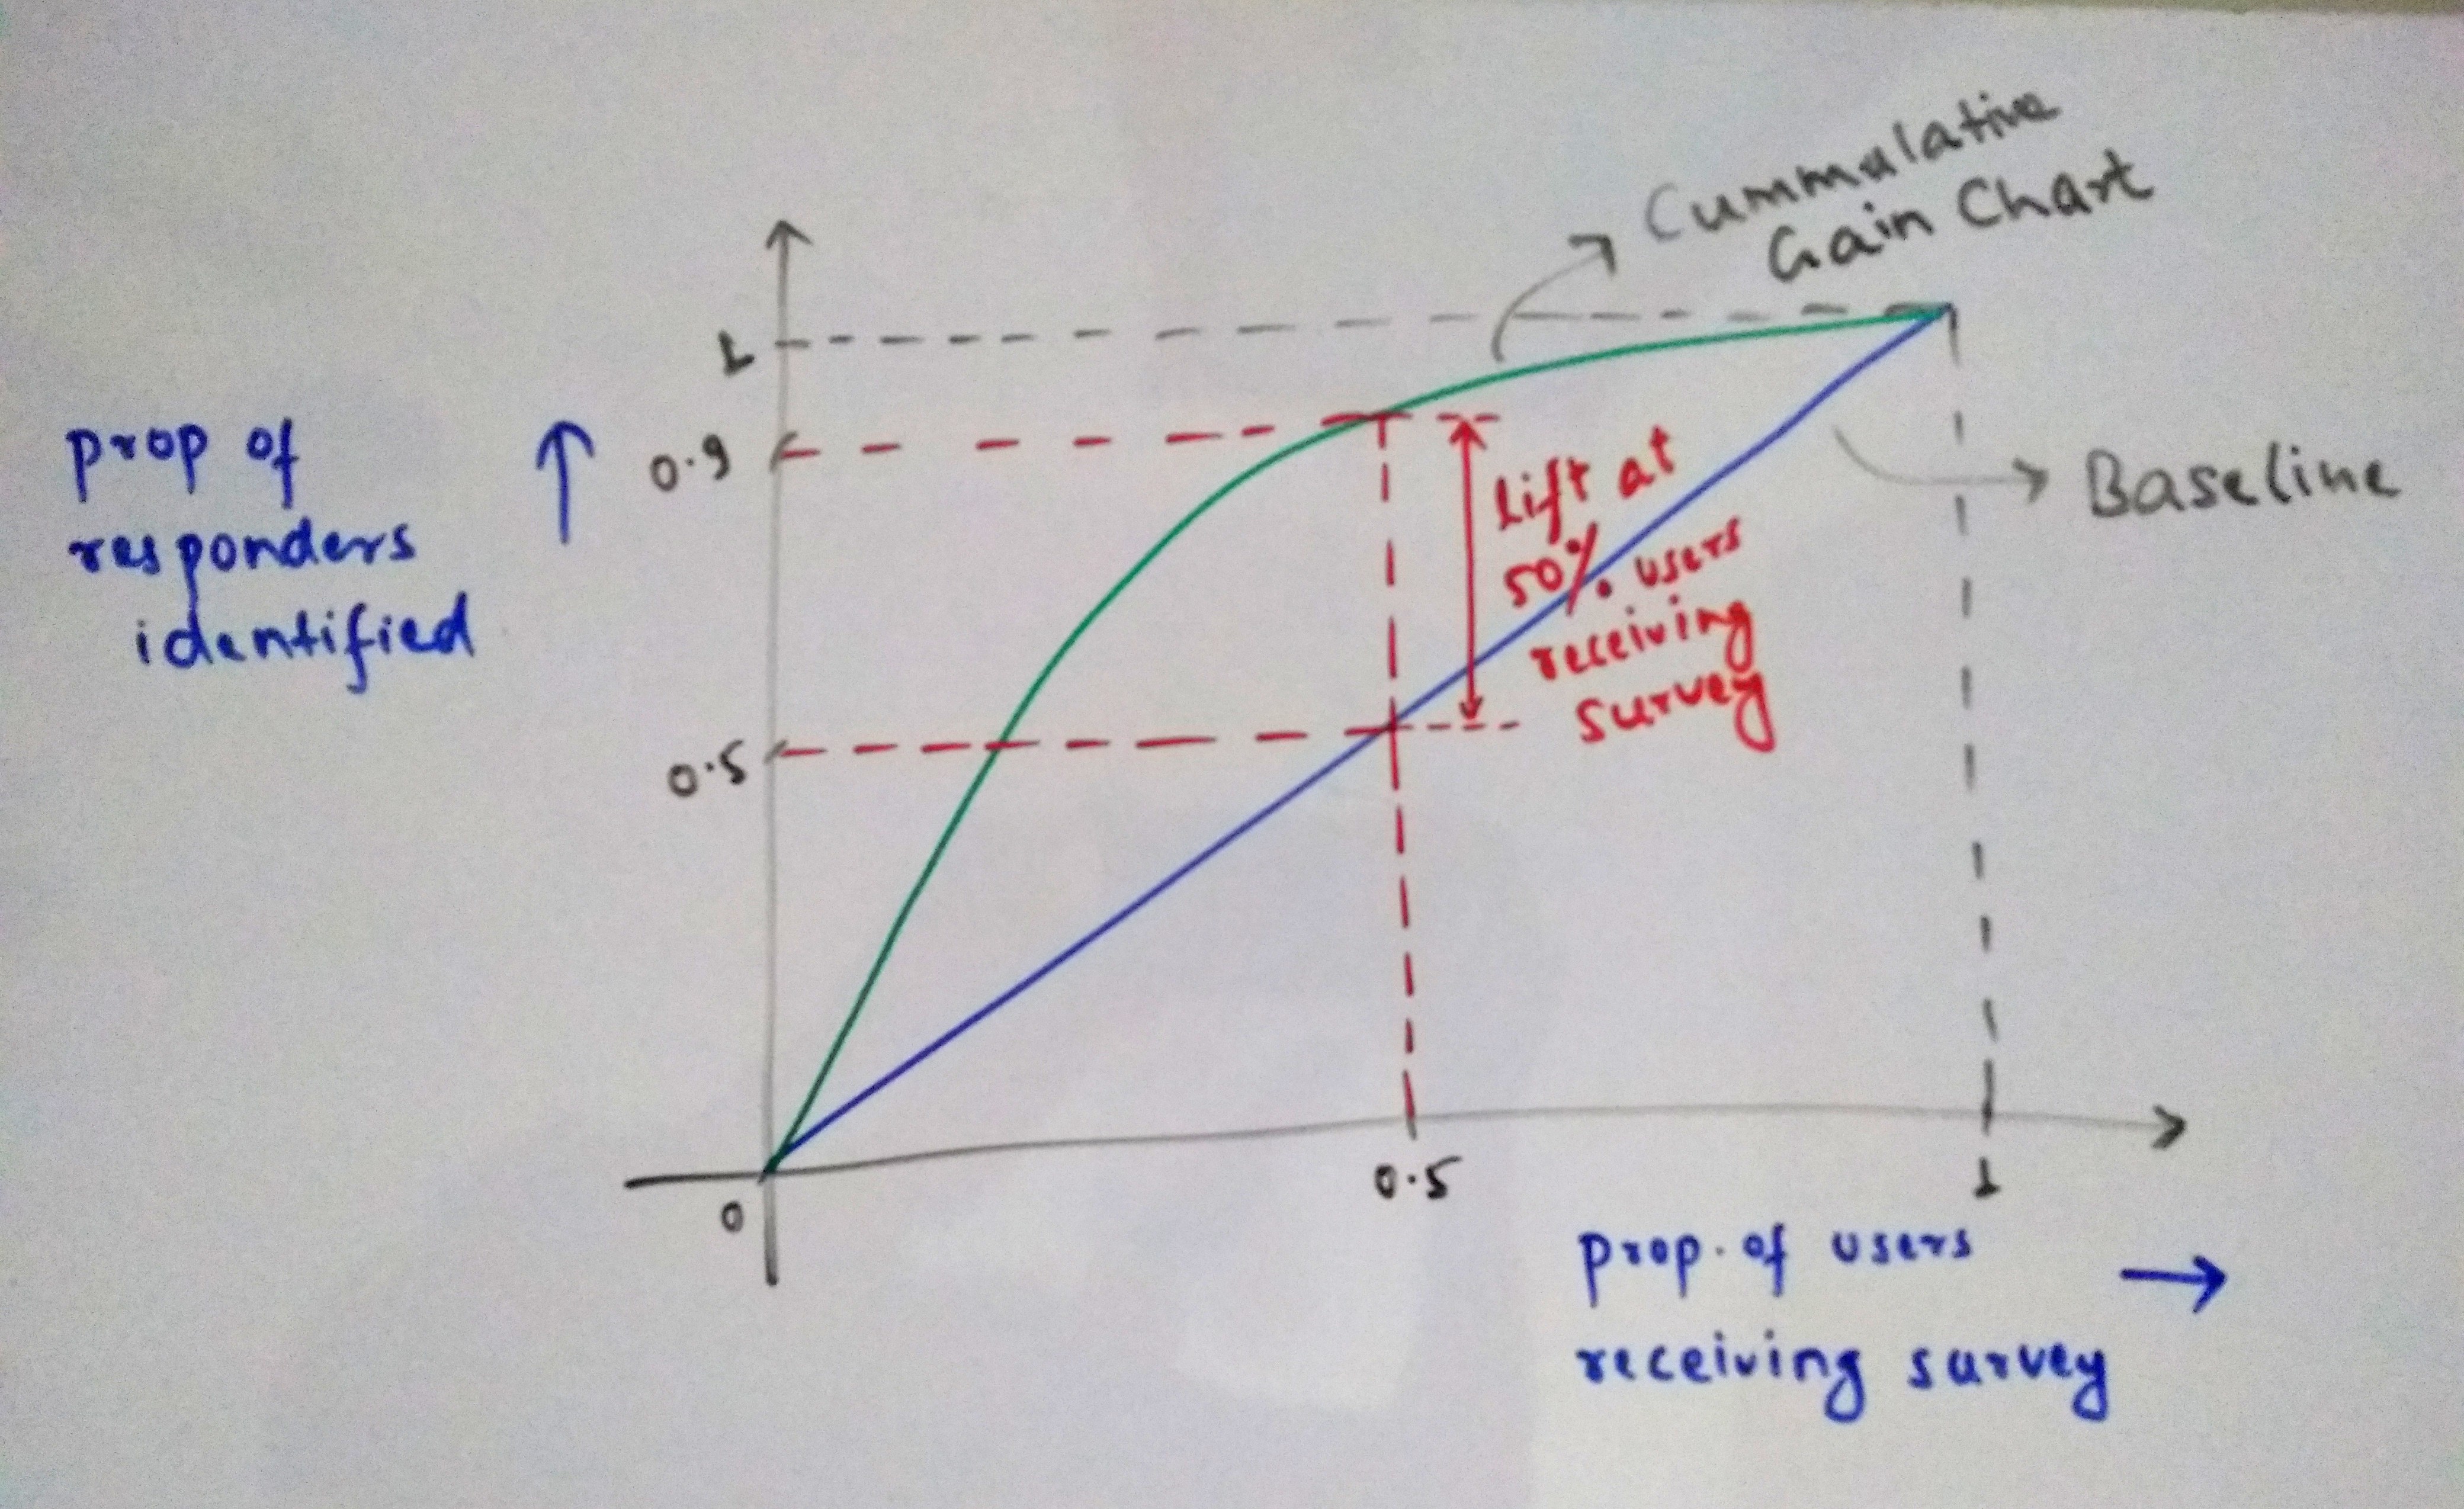 Cummulative
Gain Chart
1
prop of
responders
identified
0.9
Lift at
50% users
receiving
survey
Baseline
0.5
0
0.5
1
prop. of users
receiving survey